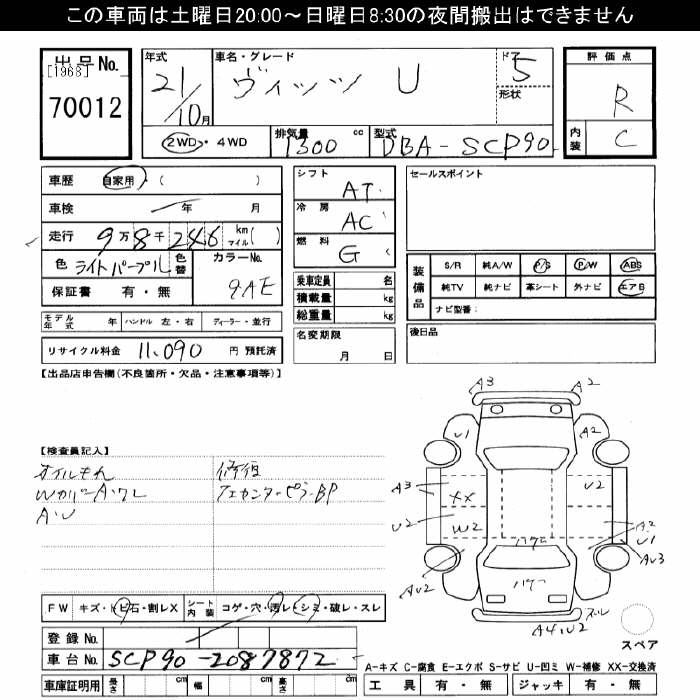 この車両は土曜日20:00～日曜日8:30の夜間搬出はできません
出品No.
[1968]
70012
年式
21/10月
車名・グレード
ヴィッツ U
ドア 5
形状
2WD・4WD
排気量 1300 cc
型式 DBA-SCP90
評価点
R
内装 C
車歴 自家用・( )
車検 年 月
走行 9万8千246 km マイル( )
色 ライトパープル 色替
カラーNo. 9AE
保証書 有・無
モデル年式 年 ハンドル 左・右 ディーラー・並行
リサイクル料金 11,090 円 預託済
シフト AT
冷房 AC
燃料 G
乗車定員 名
積載量 kg
総重量 kg
名変期限
月 日
セールスポイント
装備品
S/R 純A/W P/S P/W ABS
純TV 純ナビ 革シート 外ナビ エアB
ナビ型番:
後日品
【出品店申告欄(不良箇所・欠品・注意事項等)】
【検査員記入】
オイルもれ
WカバーA・ワレ
A・U
修復
フェンダーピラーBP
A3 A2
U1 A2
A3 XX U2
U2 W2 A2 U1
ハゲ AU3
AU2 ハゲ
A4,U2
スペア
FW キズ・トビ石・割レX シート内装 コゲ・穴・汚レ・シミ・破レ・スレ
登録No.
車台No. SCP90-2087872
車庫証明用 長さ cm 幅 cm 高さ cm
A-キズ C-腐食 E-エクボ S-サビ U-凹ミ W-補修 XX-交換済
工具 有・無 ジャッキ 有・無